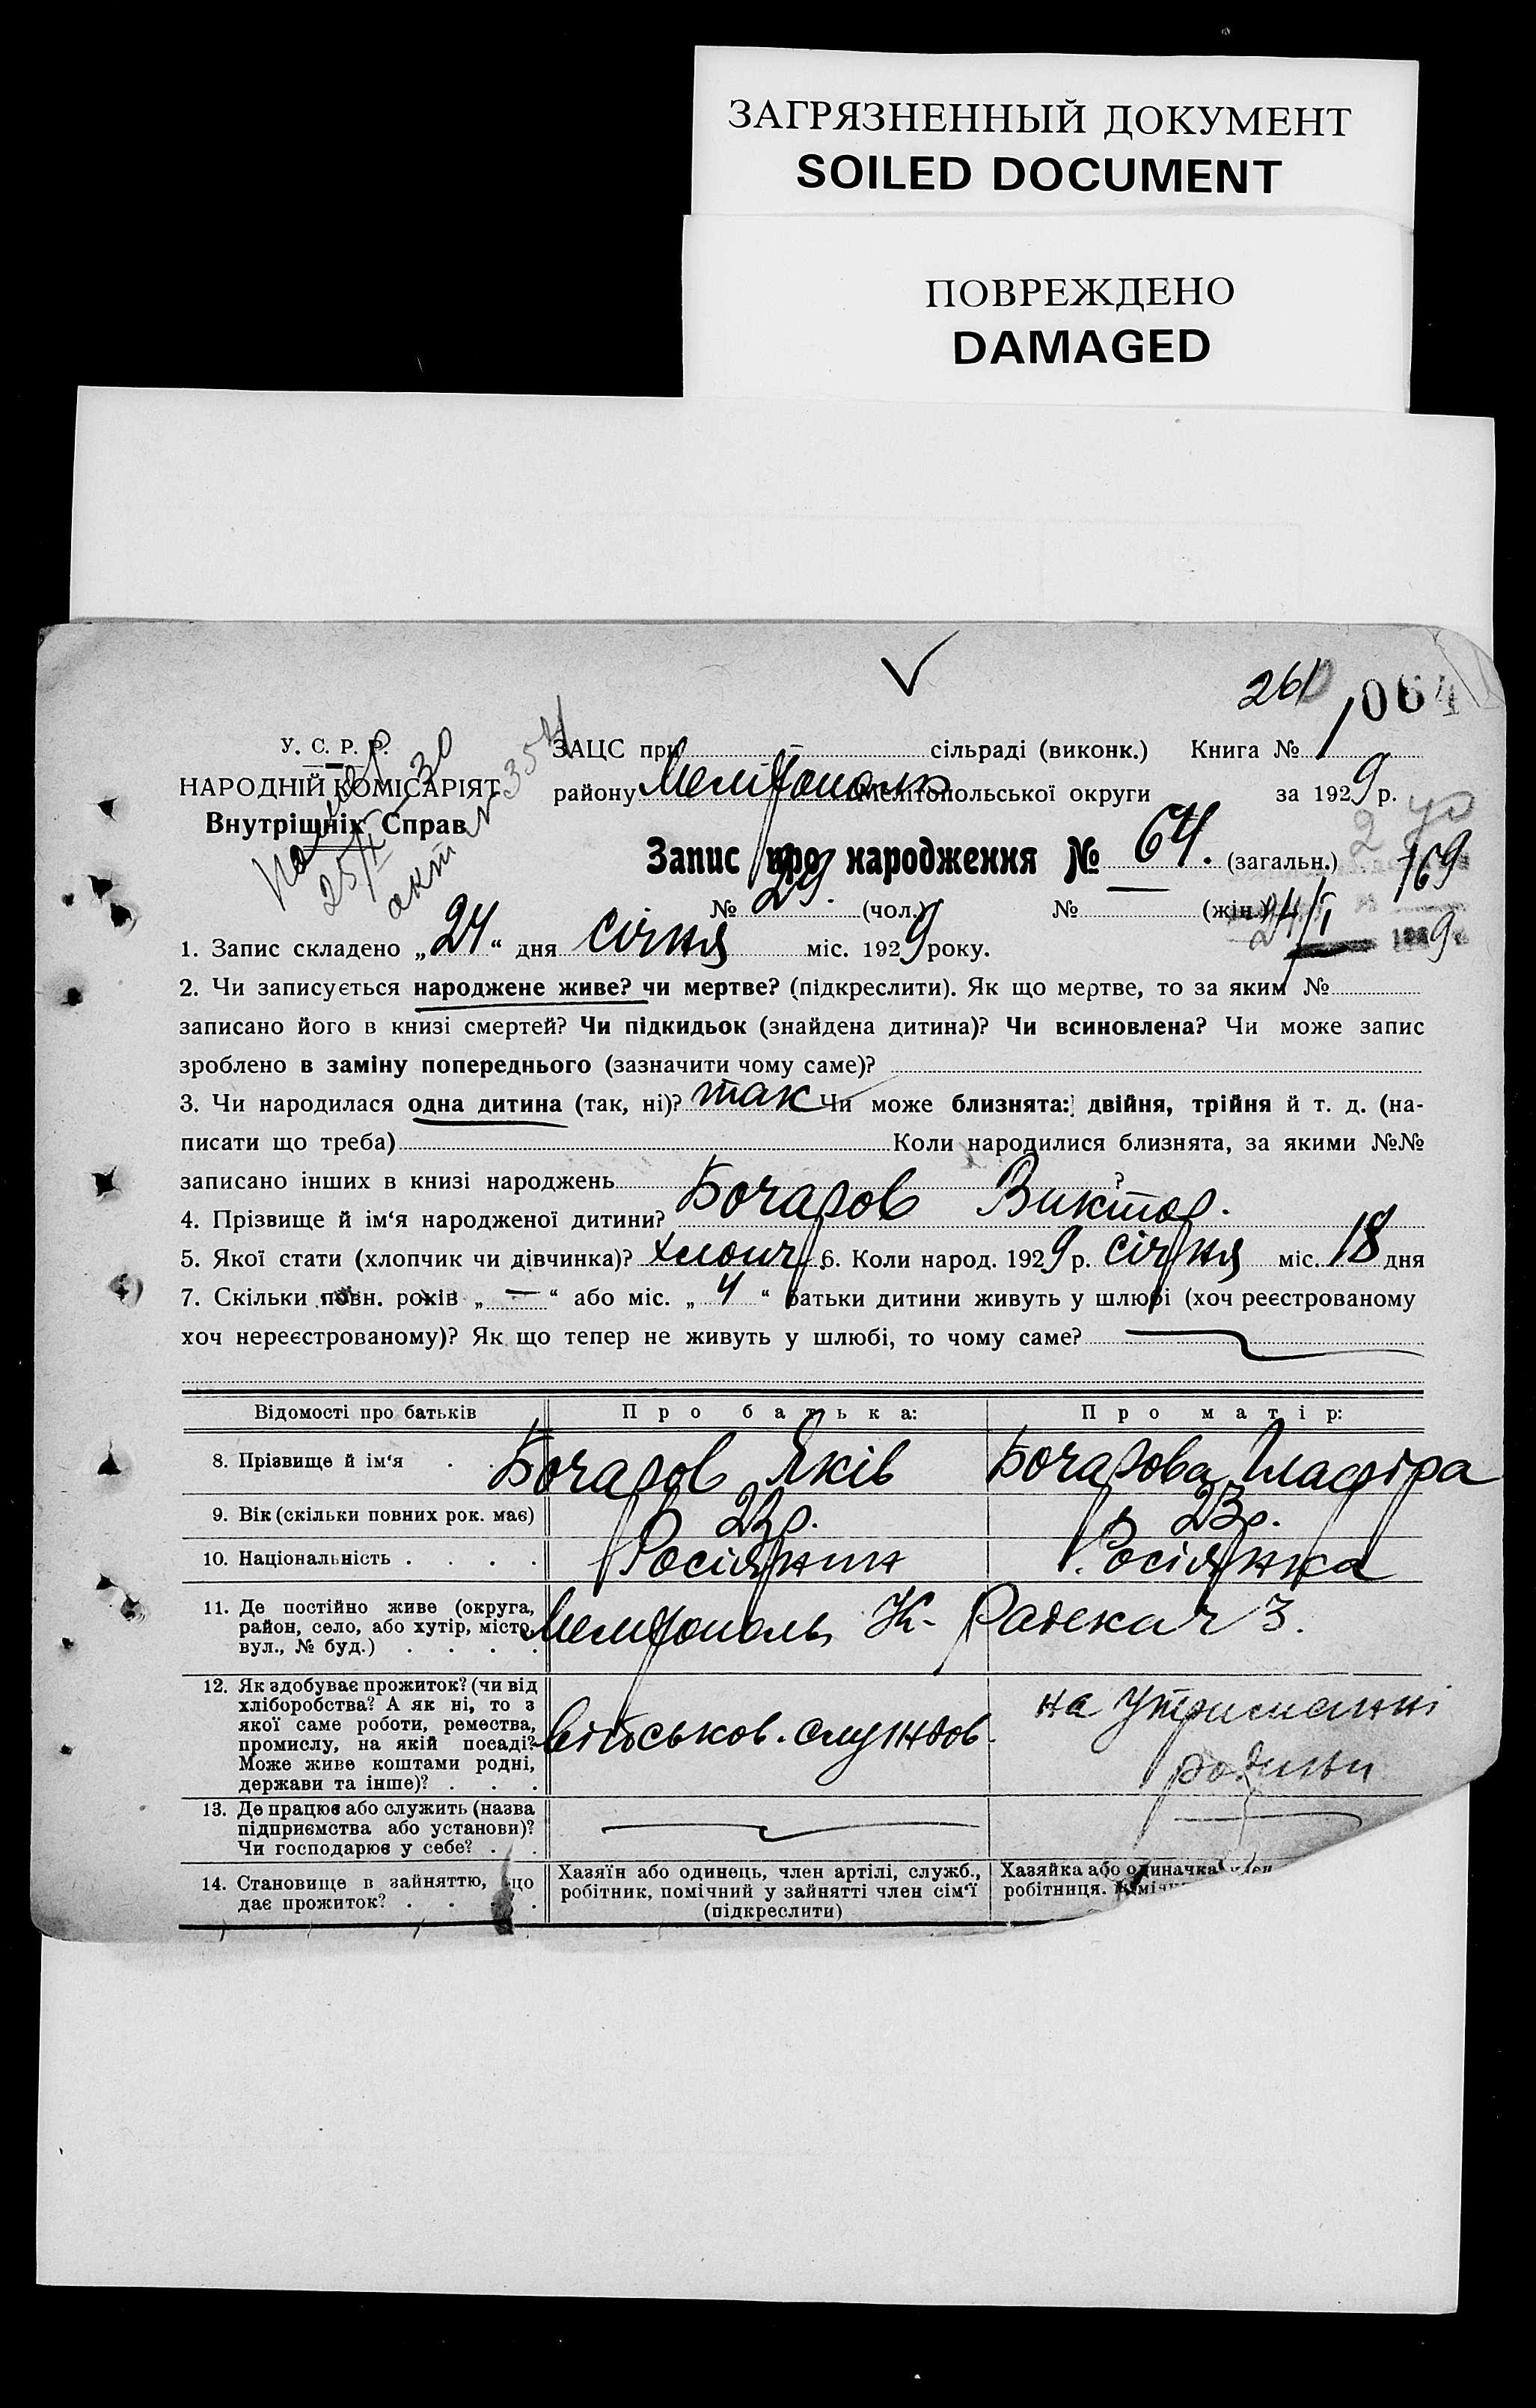 ЗАГРЯЗНЕННЫЙ ДОКУМЕНТ
SOILED DOCUMENT
ПОВРЕЖДЕНО
DAMAGED
260 1064
У. С. Р. Р.
НАРОДНІЙ КОМІСАРІЯТ
Внутрішніх Справ
25/X-30
акт № 354
ЗАЦС при — сільраді (виконк.) Книга № 1
району Мелітополь Мелітопольської округи за 1929 р.
Запис про народження № 64. (загальн.)
169
№ 29. (чол.) № — (жін.)
24/I 1929
1. Запис складено „24“ дня січня міс. 1929 року.
2. Чи записується народжене живе? чи мертве? (підкреслити). Як що мертве, то за яким №
записано його в книзі смертей? Чи підкидьок (знайдена дитина)? Чи всиновлена? Чи може запис
зроблено в заміну попереднього (зазначити чому саме)?
3. Чи народилася одна дитина (так, ні)? так Чи може близнята: двійня, трійня й т. д. (на-
писати що треба) Коли народилися близнята, за якими №№
записано інших в книзі народжень ?
4. Прізвище й ім‘я народженої дитини? Бочаров Виктор.
5. Якої стати (хлопчик чи дівчинка)? хлопч 6. Коли народ. 1929 р. січня міс. 18 дня
7. Скільки повн. років „—“ або міс. „4“ батьки дитини живуть у шлюбі (хоч реєстрованому
хоч нереєстрованому)? Як що тепер не живуть у шлюбі, то чому саме? —
Відомості про батьків Про батька: Про матір:
8. Прізвище й ім‘я . . Бочаров Яків Бочарова Глафіра
9. Вік (скільки повних рок. має) 22 р. 23 р.
10. Національність . . . . Росіянин Росіянка
11. Де постійно живе (округа,
район, село, або хутір, місто,
вул., № буд.) . . . .
Мелітополь К- Радекач 3.
12. Як здобуває прожиток? (чи від
хліборобства? А як ні, то з
якої саме роботи, ремества,
промислу, на якій посаді?
Може живе коштами родні,
держави та інше)? . . .
військов. службов.
на утриманні
родини
13. Де працює або служить (назва
підприємства або установи)?
Чи господарює у себе? . .
— —
14. Становище в зайняттю, що
дає прожиток? . . . .
Хазяїн або одинець, член артілі, служб.,
робітник, помічний у зайнятті член сім‘ї
(підкреслити)
Хазяйка або одиначка, член
робітниця.